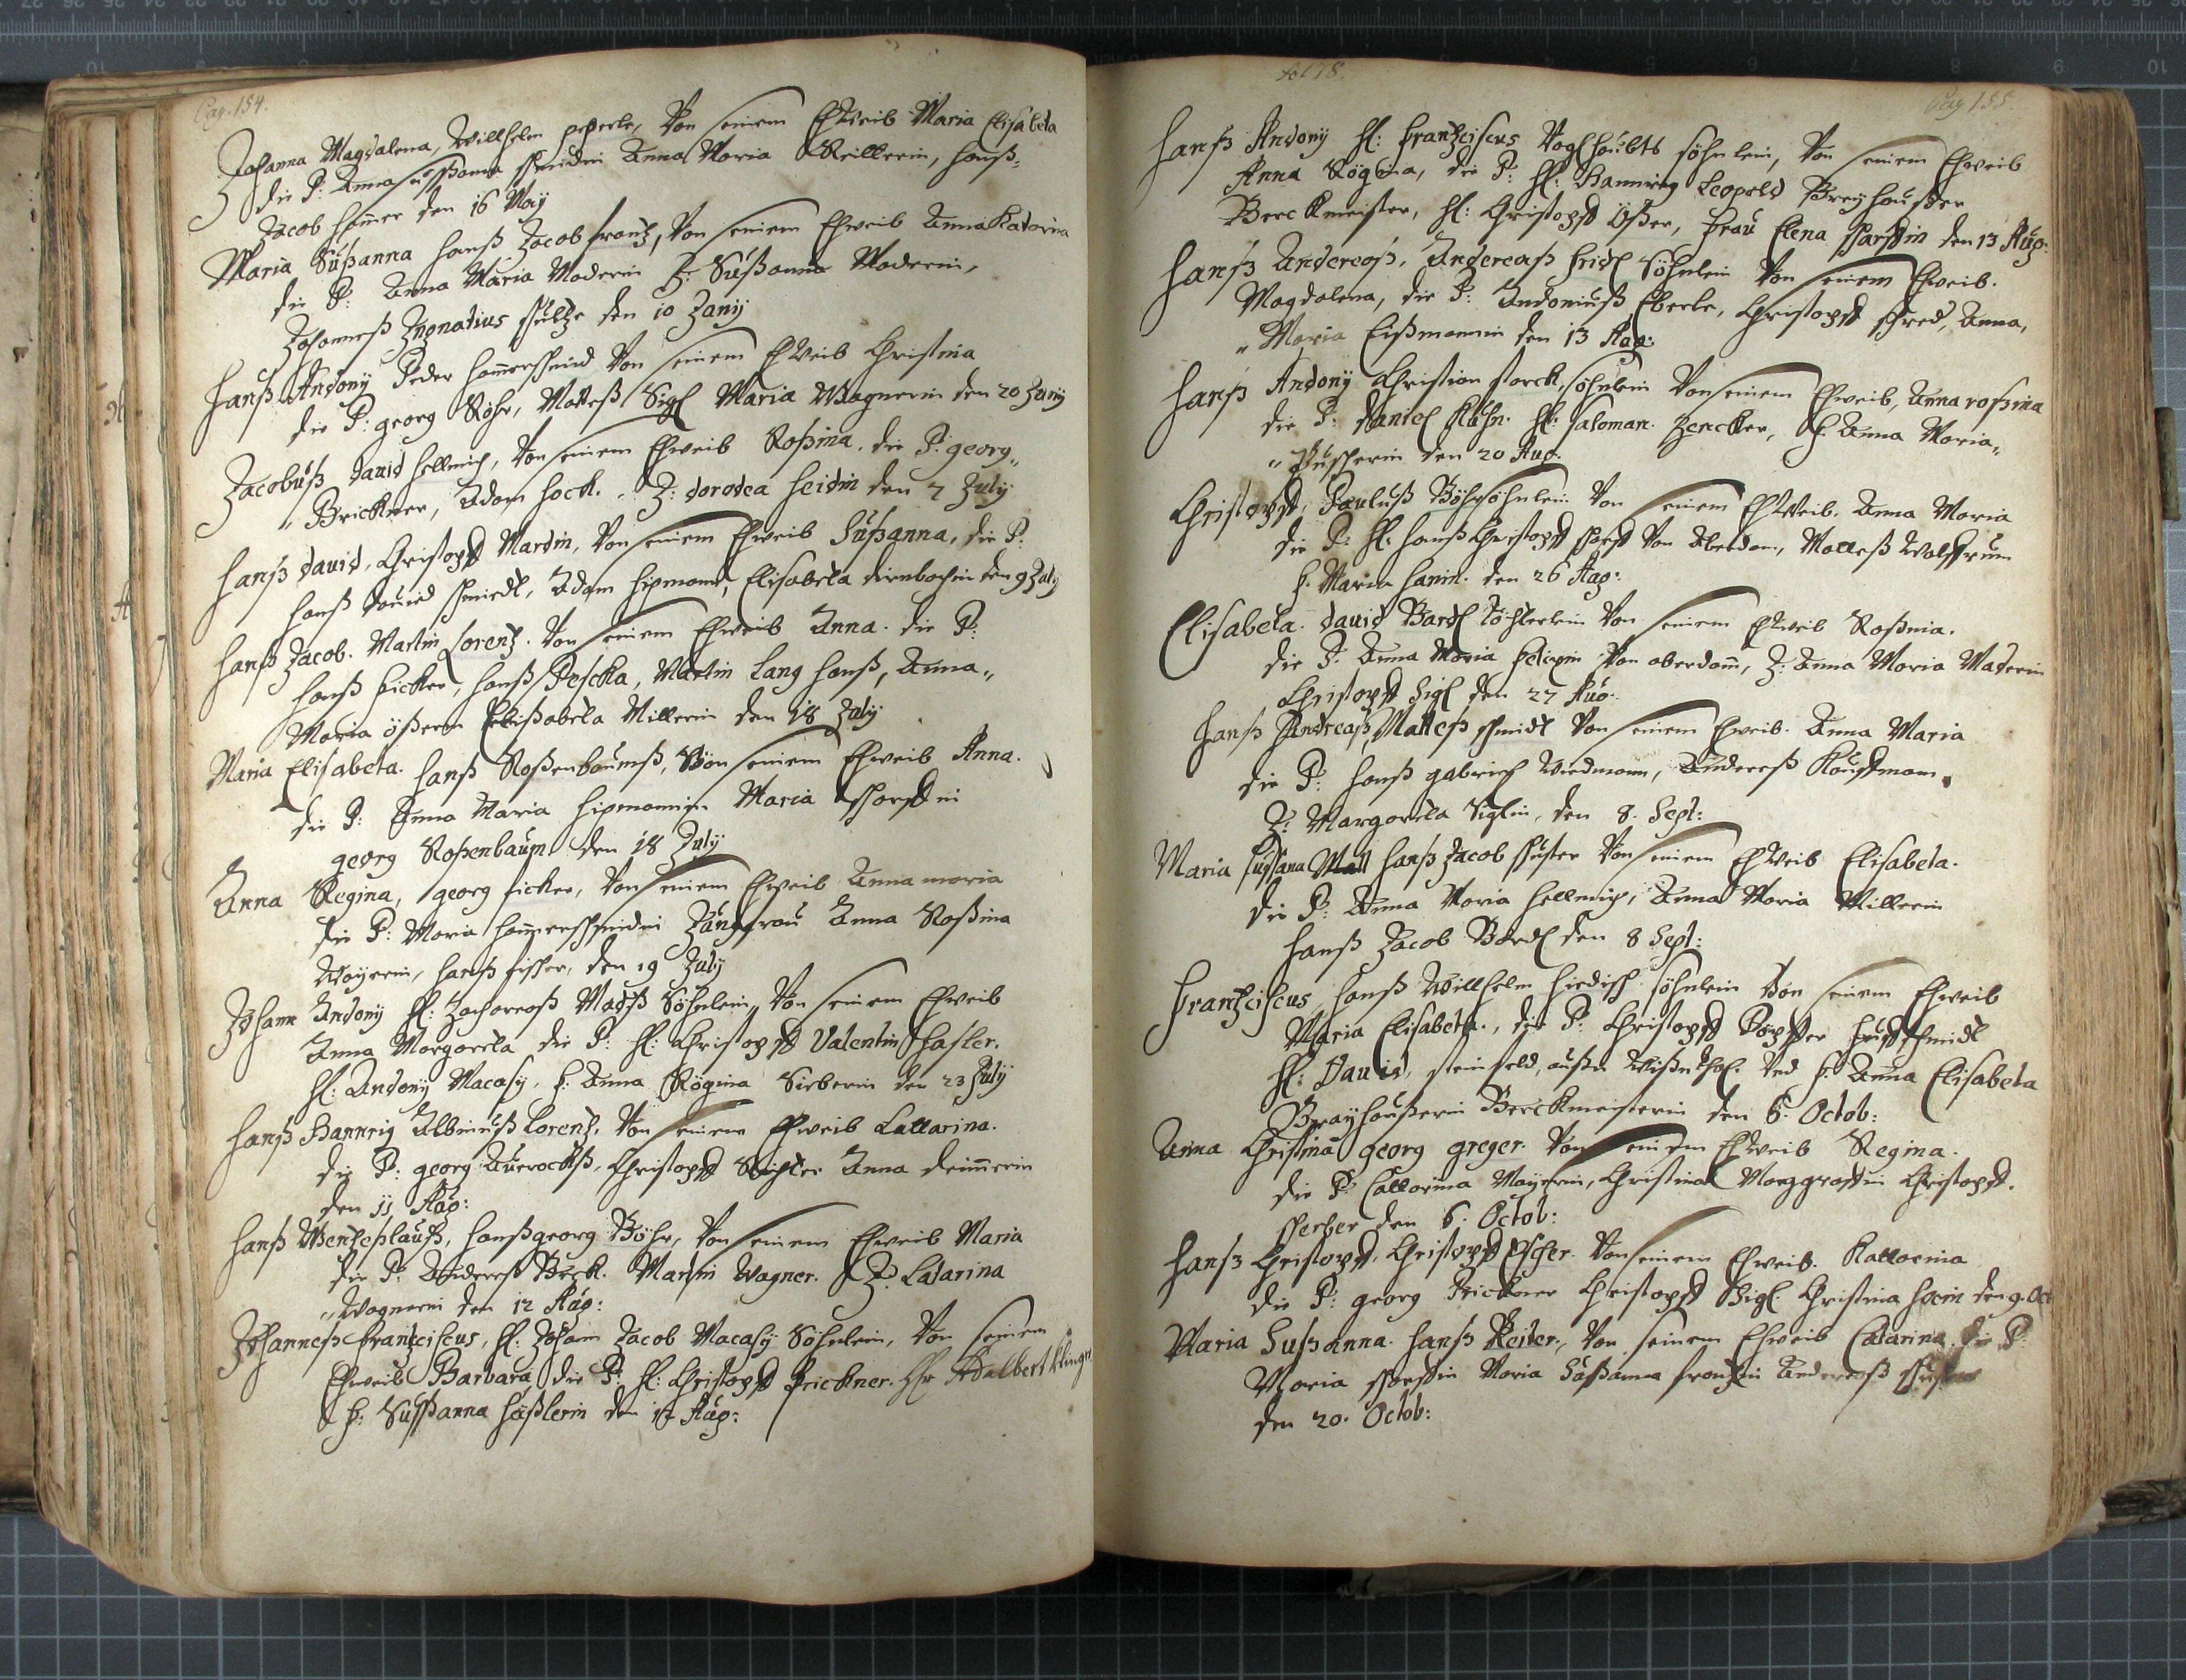 Pag. 154.
Johanna Magdalena, Willhelm perle, Von seinem Ehweib Maria Elisabeta
die P: Anna Susanna Anna Maria Millerin, Hanß
Jacob Hamer den 16 May
Maria Sußanna Hanß Jacob frantz, Von seinem Ehweib Anna Katarina
die P: Anna Maria Moderin J: Sußanna Moderin,
Johanneß Ignatius Schultze den 10 Juny
Hanß Andony Peder Hamerschmid Von seinem Ehweib Christina
die P: georg Röhr, Matteß Sigl Maria Wagnerin den 20 Juny
Jacobuß David Hellmich, Von seinem Ehweib Roßina. die P: georg„
„Brickner, Adam Hock. J: dorotea Heidin den 7 July
Hanß David, Christoph Martin, Von seinem Ehweib Sußanna, die P:
Hanß David Schmidt, Adam Hipmann, Elisabeta dirnbachin den 9 July
Hanß Jacob. Martin Lorentz. Von seinem Ehweib Anna. die P:
Hanß ficker, Hanß Peschka, Martin Lang Hanß, Anna„
Maria ößerin Elißabeta Millerin den 18 July
Maria Elisabeta. Hanß Roßenbaumß, Von seinem Ehweib Anna.
die P: Anna Maria Hipmannin Maria Schorstin
georg Roßenbaum den 18 July
Anna Regina, georg ficker, Von seinem Ehweib Anna maria
die P: Maria Hamerschmidin Jungfrau Anna Roßina
Mayerin, Hanß fischer, den 19 July
Johann Andony H: Zachareaß Matß Söhnlein, Von seinem Ehweib
Anna Margareta die P: H: Christoph Valentin Hasler.
H: Andony Macasy. f: Anna Rögina Sieberin den 23 July
Hanß Hannrig Albinuß Lorentz. Von seinem Ehweib Cattarina.
die P: georg Auerochß, Christoph Richter Anna deimerin
den 11 Aug:
Hanß Wentzeßlauß, Hanß georg Böhr, Von seinem Ehweib Maria
die P: Andereß Beck. Martin Wagner. J: Catarina
„Wagnerin den 12 Aug:
Johanneß Frantzciscus, H: Johann Jacob Macasy Söhnlein, Von seinem
Ehweib Barbara die P: H: Christoph Prickner. Hr Adalbert Klinger
f: Sußanna Häßlerin den 17 Aug:
fol 78.
Pag 155.
Hanß Andony H: Frantzciscus Voglhaubts söhnlein, Von seinem Ehweib
Anna Rögina, die P: H: Hannrig Leopold Breyhaußer
Berckmeister, H: Christoph Ößer, Frau Elena den 13 Aug:
Hanß Andereaß, Andereaß Fridl Söhnlein Von seinem Ehweib.
Magdalena, die P: Andoniuß Eberle, Christoph Anna,
„Maria Eißmannin den 13 Aug:
Hanß Andony Christian Storck, söhnlein Von seinem Ehweib, Anna roßina
die P: Daniel Kühn. H: Saloman. Zencker, f: Anna Maria„
„ den 20 Aug:
Christoph, Pauluß Böhr söhnlein Von seinem Ehweib. Anna Maria
die P: H: Hanß Christoph Von Aberdam, Matteß Wolffrum
f: Maria Hanin. den 26 Aug:
Elisabeta. David Bartl Töchterlein Von seinem Ehweib Roßnia.
die P. Anna Maria Von oberdam, J: Anna Maria Maderin
Christoph Sigl den 27 Aug:
Hanß Andreaß, Matteß Schmidt Von seinem Ehweib. Anna Maria
die P: Hanß gabriel Widmann, Andereß Kauffman,
J: Margareta Siglin, den 8. Sept:
Maria sußana Hanß Jacob Schuster Von seinem Ehweib Elisabeta.
die P: Anna Maria Hellmich, Anna Maria Millerin
Hanß Jacob Bardl den 8 Sept:
Frantzciscus, Hanß Willhelm söhnlein Von seinem Ehweib
Maria Elisabeta., die P: Christoph Huffschmidt
H: David, steinfeld, f: Anna Elisabeta
Brayhaußerin Berckmeisterin den 6. Octob:
Anna Christina georg greger. Von seinem Ehweib Regina.
die P: Cattarina Mayerin, Christina Marggraffin Christoph.
den 6. Octob:
Hanß Christoph, Christoph Escher. Von seinem Ehweib. Kattarina
die P: georg Prickner Christoph Sigl. Christina den 9. Oct
Maria Sußanna. Hanß Reiter, Von seinem Ehweib Catarina. die P:
Maria Schorstin Maria Sußanna frantzin Andereaß Schuster
den 20. Octob: